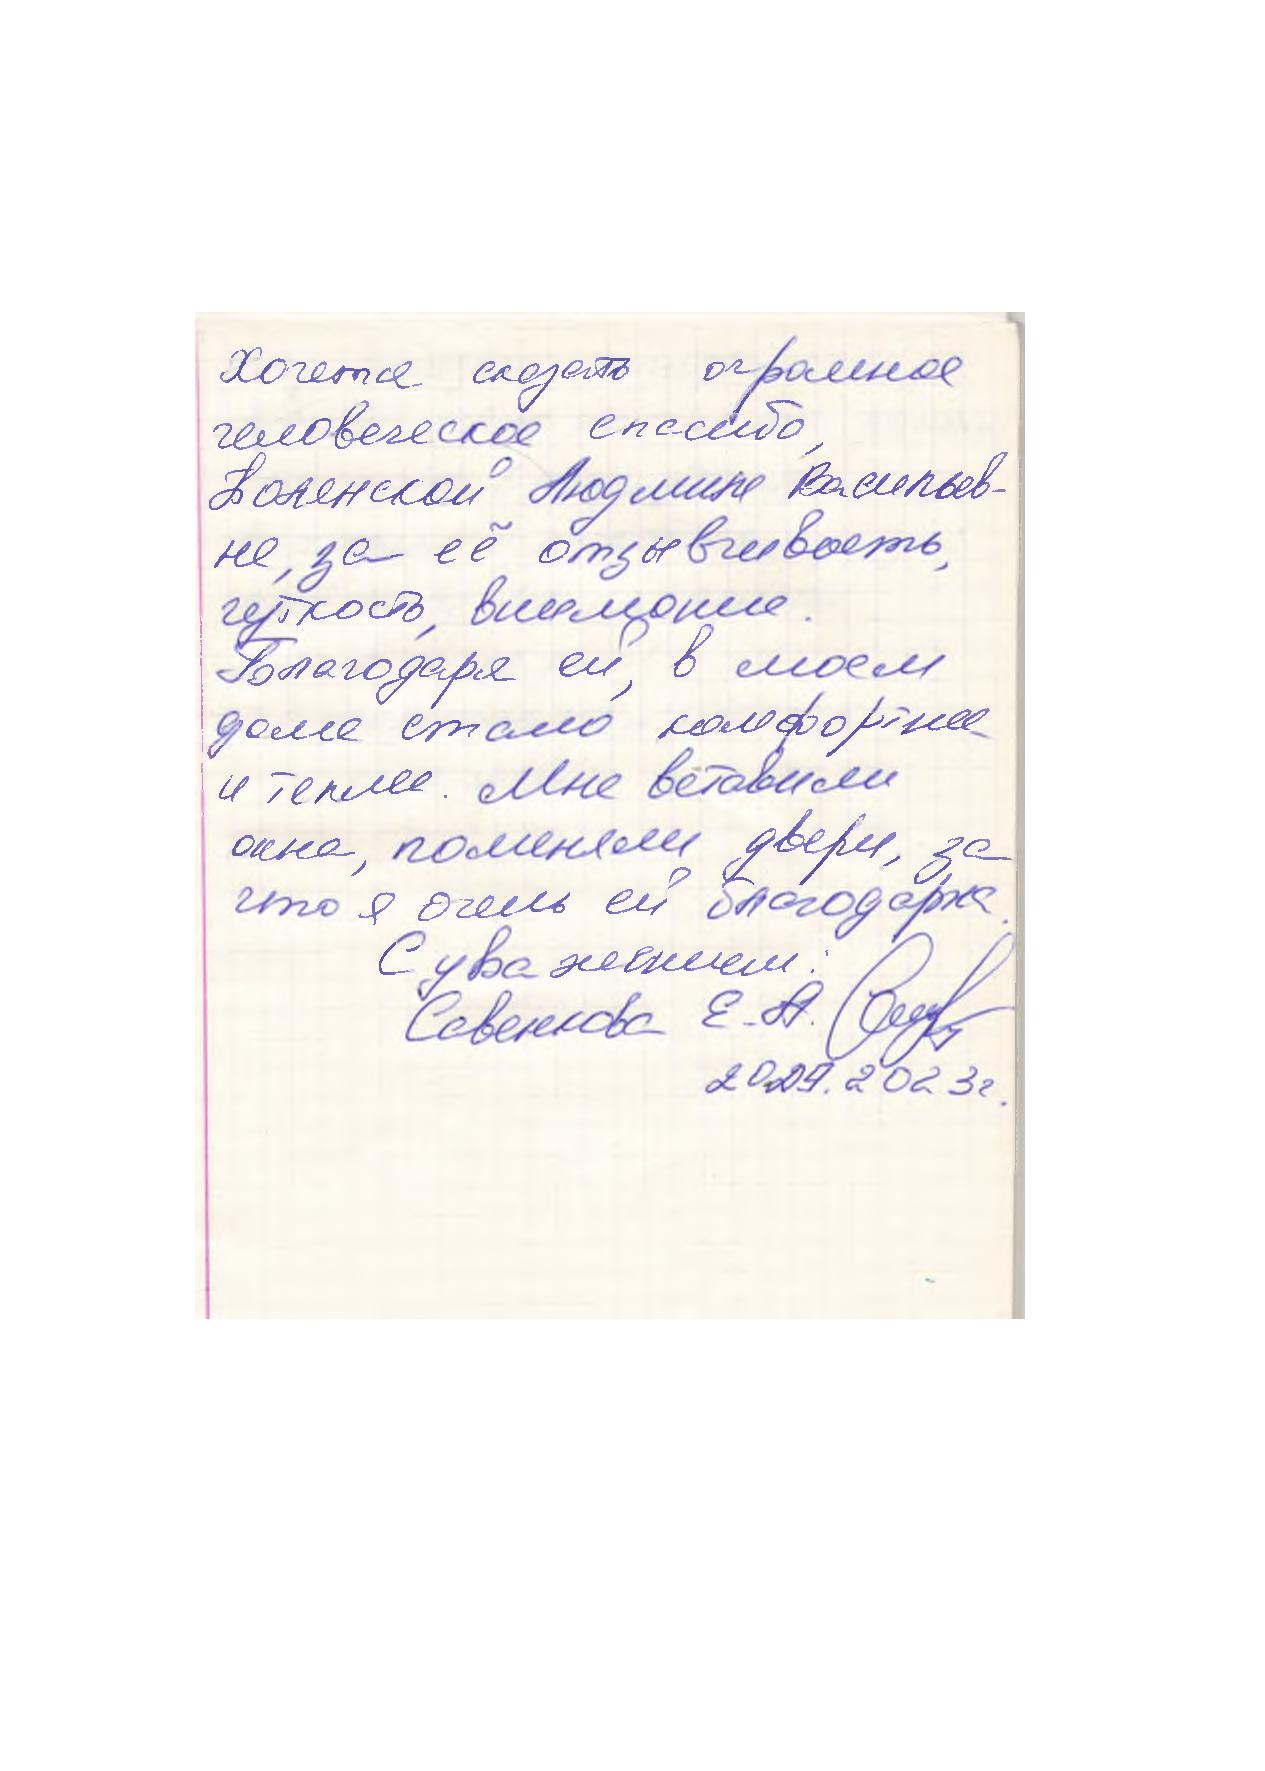 Хочется сказать огромное
человеческое спасибо,
Людмине Васильев-
не, за её отзывчивость,
чуткость, внимание.
Благодаря ей, в моем
доме стало комфортнее
и теплее. Мне вставили
окна, поменяли двери, за
что я очень ей благодарна.
С уважением:
Савенкова Е.А.
20.09.2023г.